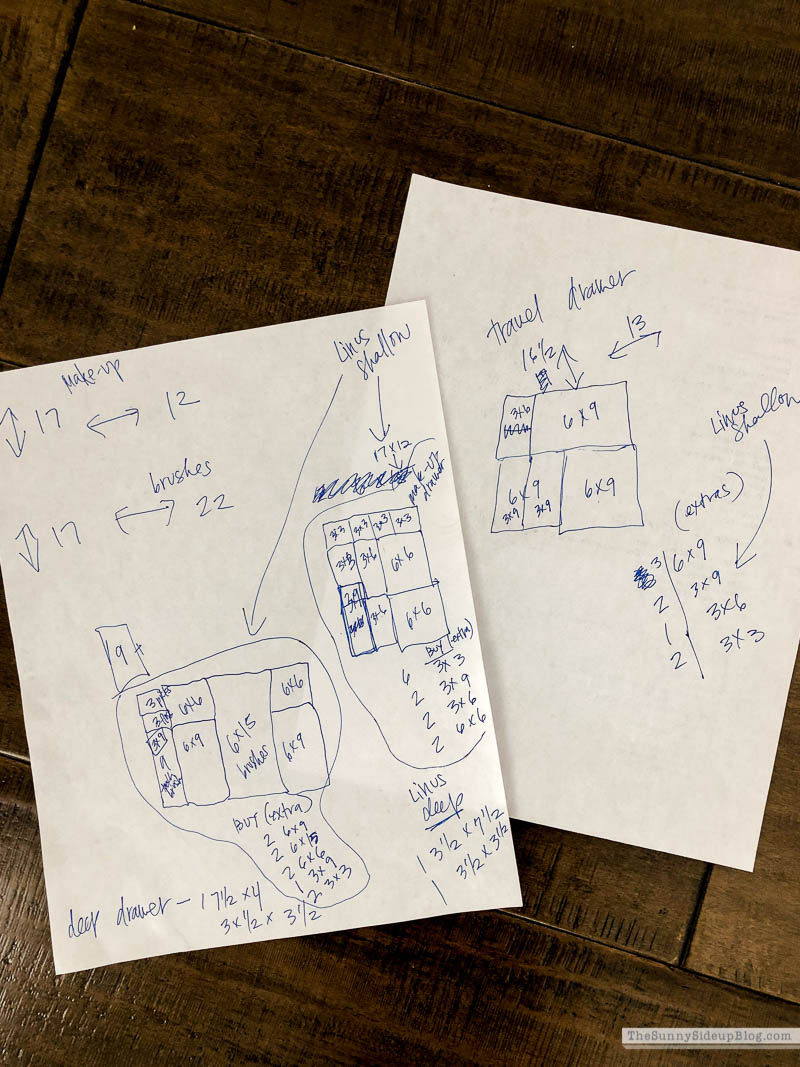 make-up
17
12
brushes
17
22
Linus
shallow
17x12
make-up
drawer
3x3 3x3 3x3 3x3
3x3 3x6 6x6
3x9
3x6 6x6
BUY (extra)
6 3x3
2 3x9
2 3x6
2 6x6
Linus
deep
1 3 1/2 x 7 1/2
1 3 1/2 x 3 1/2
9
6x6
6x6
3x9
6x9
6x15
brushes
6x9
9
BUY (extra)
2 6x9
2 6x15
2 6x6
1 3x9
2 3x3
deep drawer - 17 1/2 x 4
3 x 1/2 x 3 1/2
travel drawer
16 1/2
13
3x6
6x9
6x9
3x9 3x9
6x9
Linus
shallow
(extras)
3 6x9
2 3x9
1 3x6
2 3x3
TheSunnySideupBlog.com